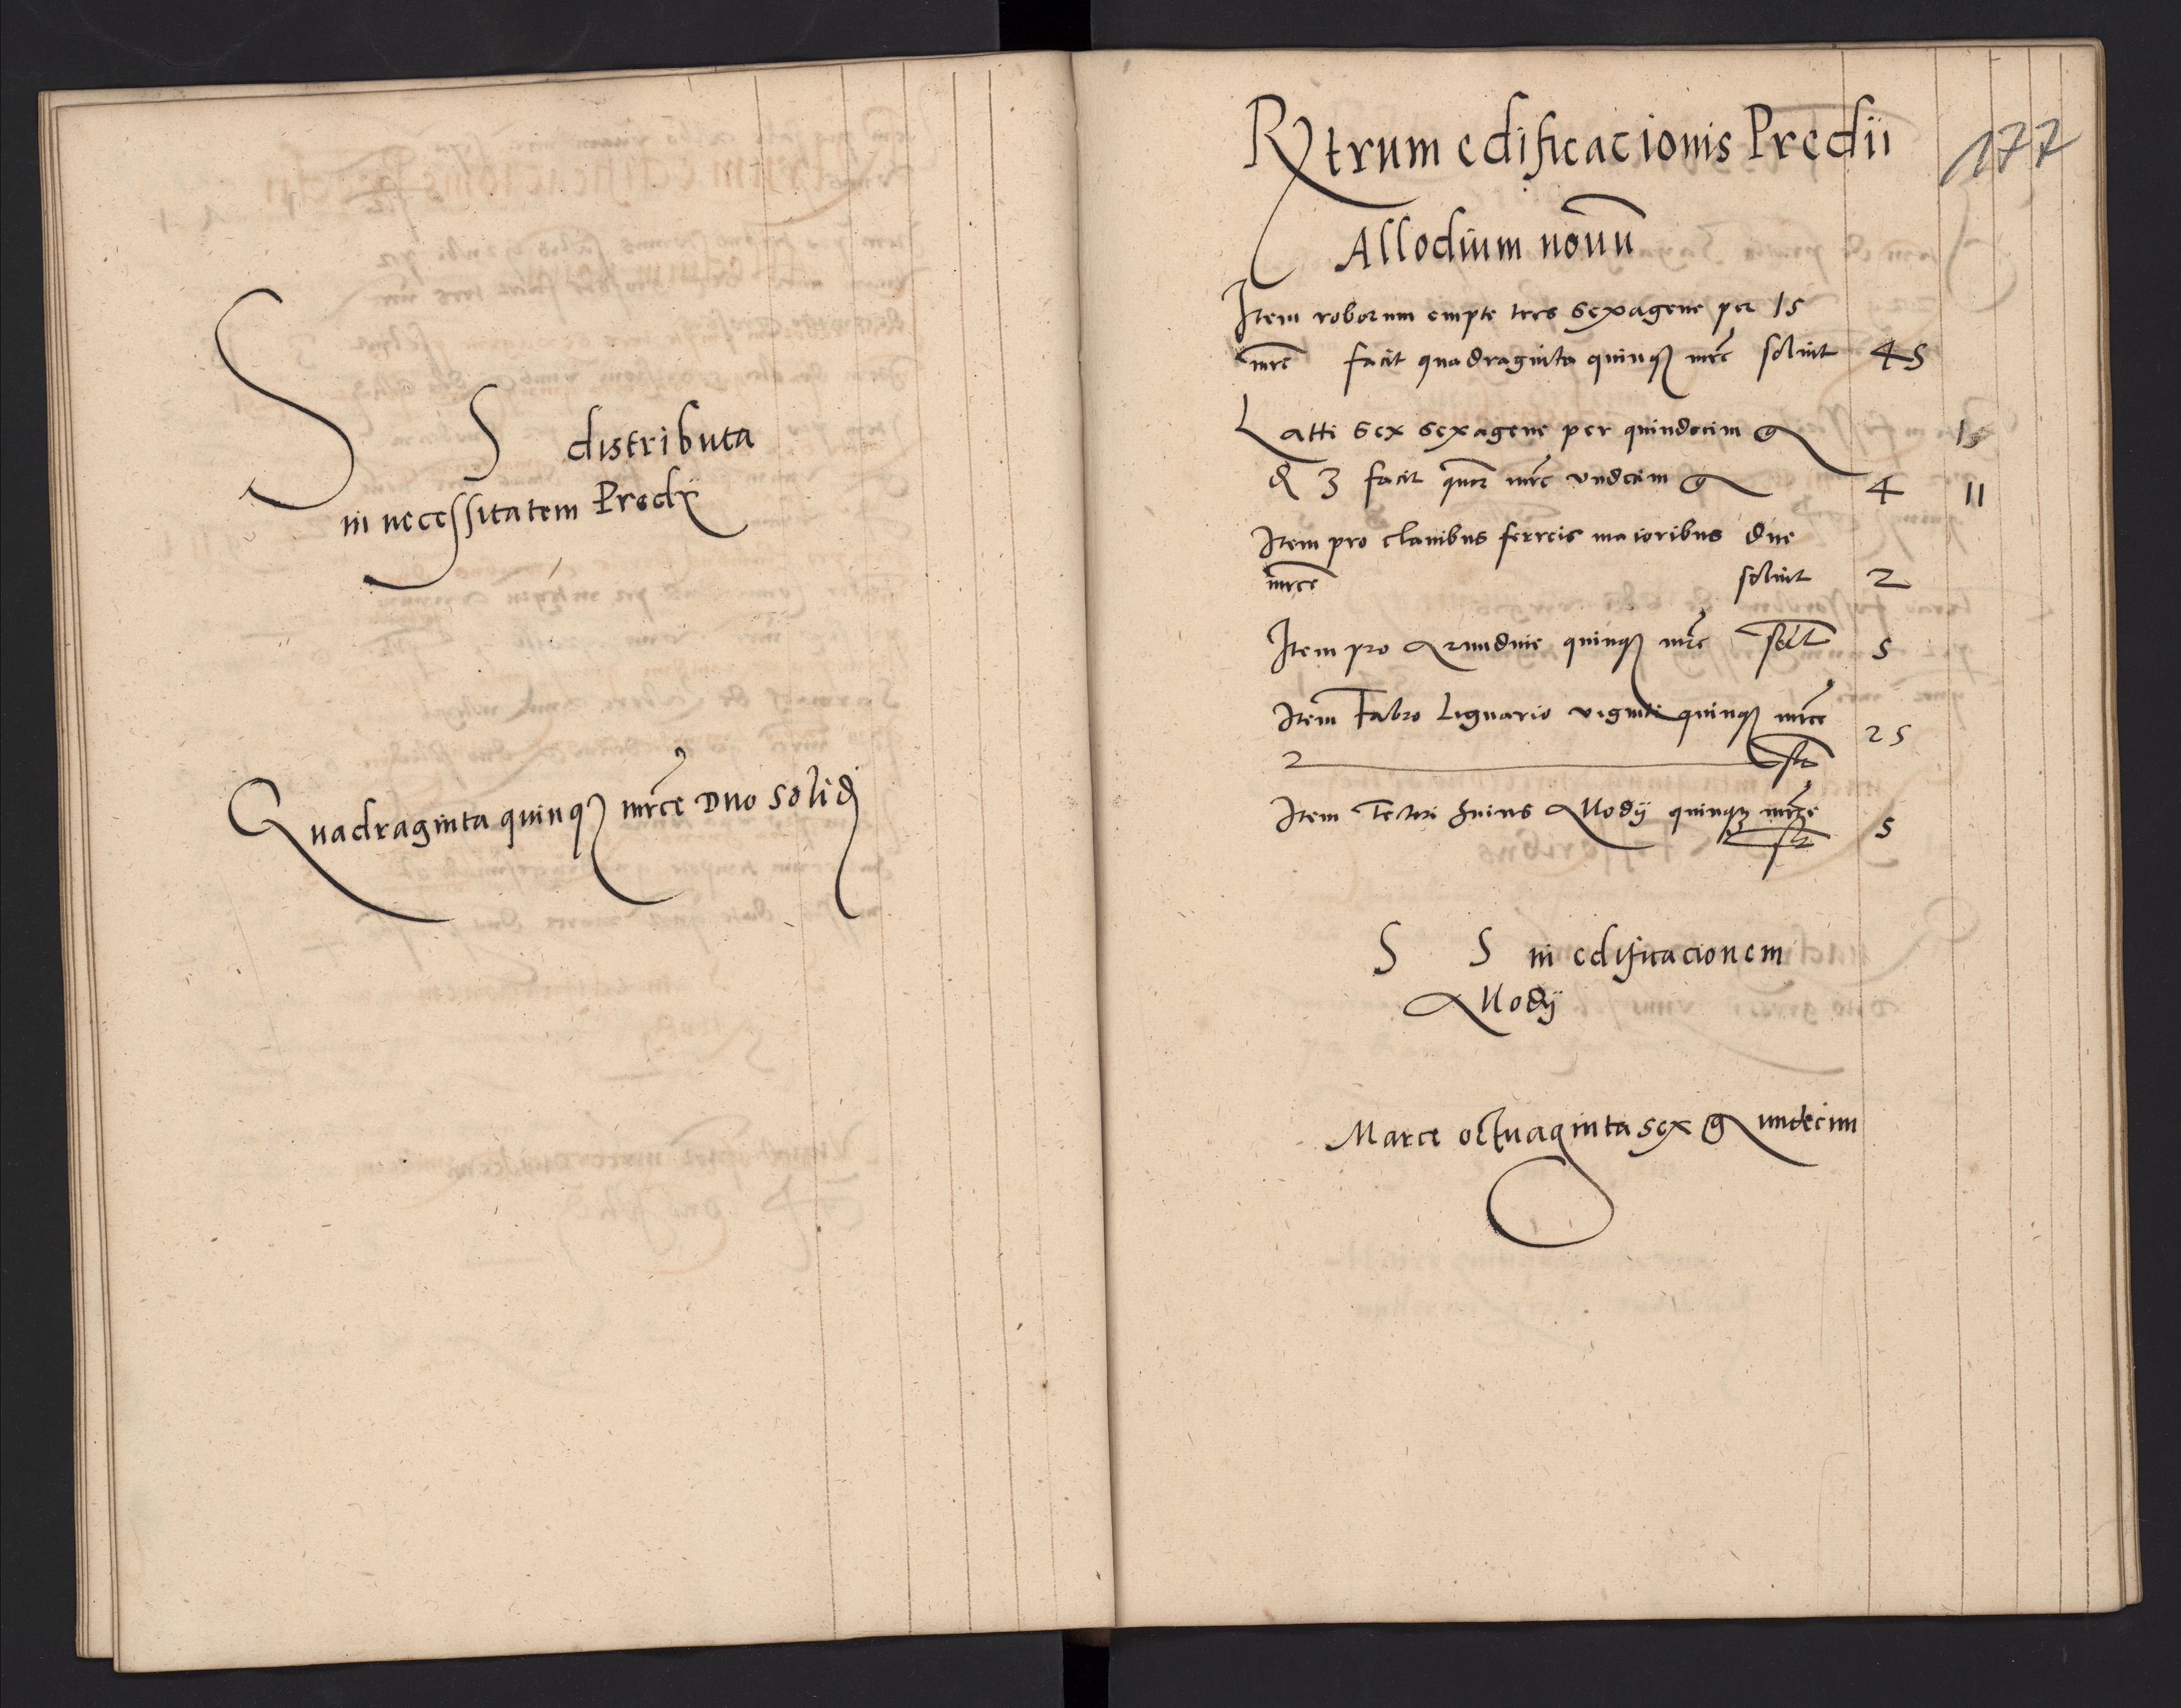 S S distributa
in necessitatem Predij
Quadraginta quinq3 mrce Duo Solid
Rtrum edificacionis Predii
177
Allodium nouu
Item roborum empte tres Sexagene per 15
mrc facit quadraginta quinq3 mrc soluit 45
Latti Sex Sexagene per quindecim g 15
& 3 facit quor mrc vndecim g 4 11
Item pro clauibus ferreis maioribus due
mrce soluit 2
Item pro Arundine quinq3 mrc solt 5
Item Fabro Lignario viginti quinq3 mrce
2 flt 25
Item Tectori huius Allodij quinq3 mrce
flt 5
S S in edificacionem
Allodij
Marce octuaginta sex g undecim